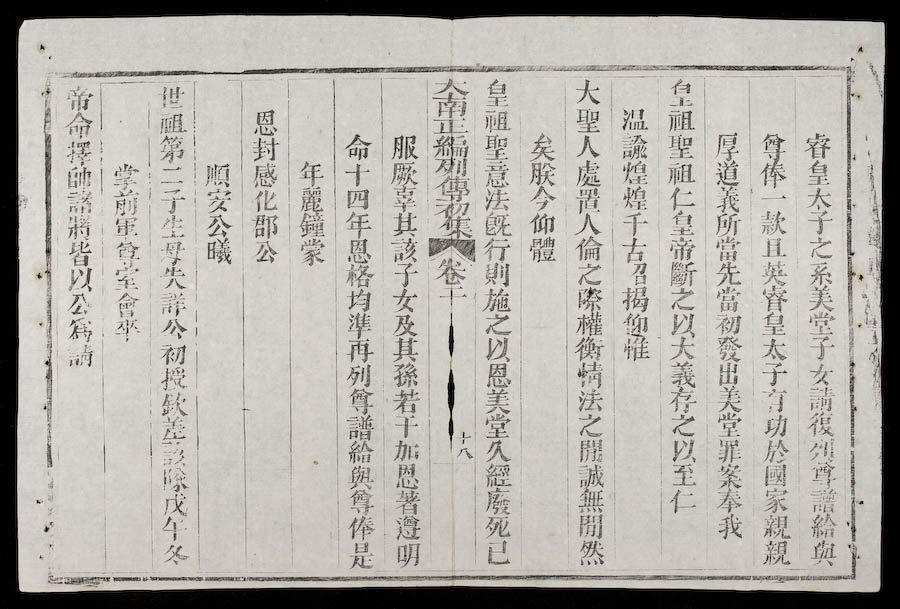 睿皇太子之系美堂子女請復列尊譜給與
尊俸一款且英睿皇太子有功於國家親親
厚道義所當先當初發出美堂罪案奉我
皇祖聖祖仁皇帝斷之以大義存之以至仁
溫諭煌煌千古召揭仰惟
大聖人處置人倫之際權衡情法之閒誠無閒然
矣朕今仰體
皇祖聖意法旣行則施之以恩美堂久經廢死已
大南正編列傳初集 卷二 十八
服厥辜其該子女及其孫若干加恩著遵明
命十四年恩格均準再列尊譜給與尊俸是
年麗鐘蒙
恩封感化郡公
順安公曦
世祖第二子生母失詳公初授欽差該隊戊午冬
掌前軍尊室會卒
帝命擇師諸將皆以公爲請